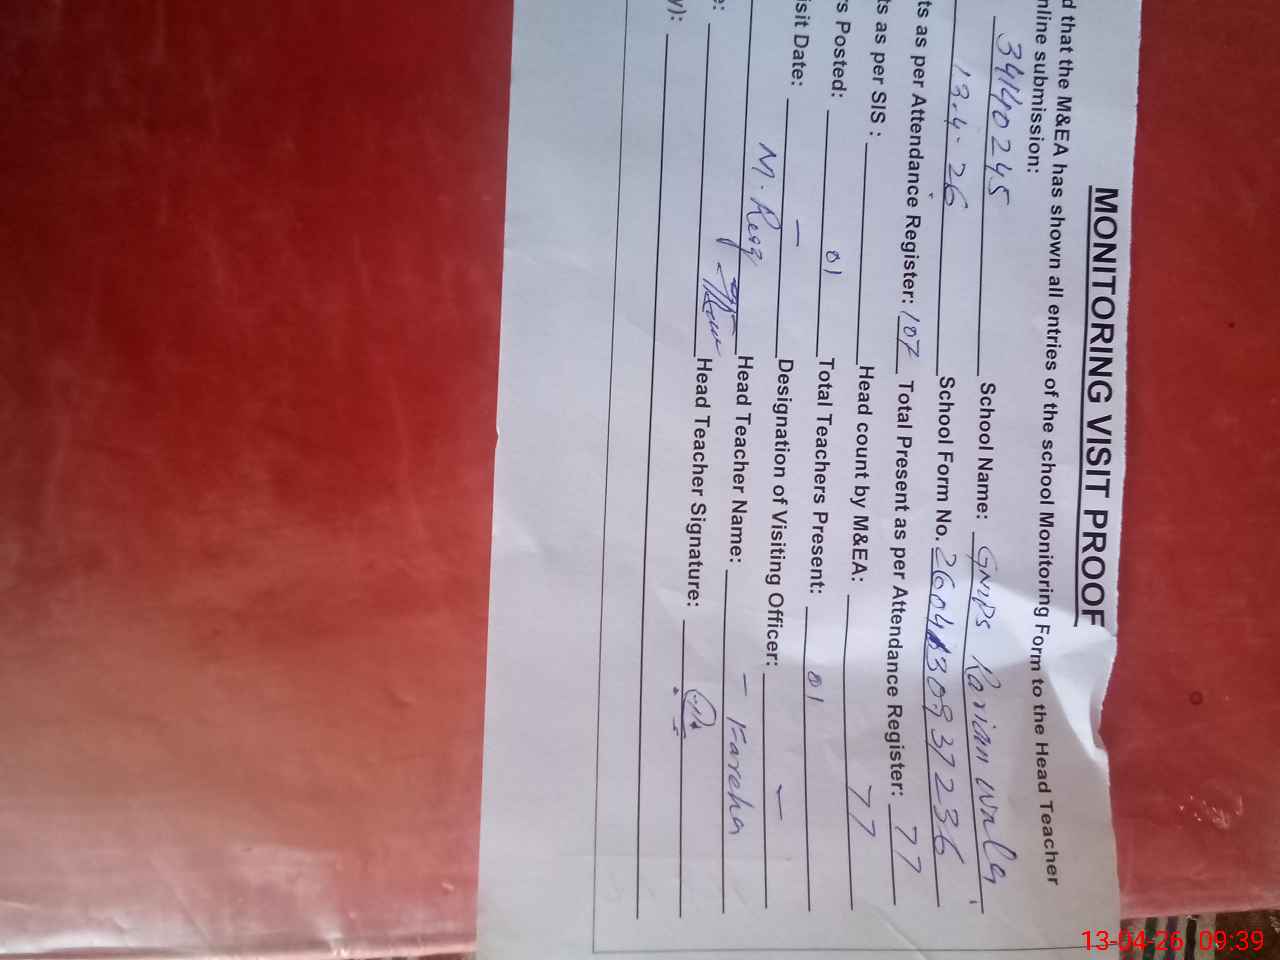 MONITORING VISIT PROOF
d that the M&EA has shown all entries of the school Monitoring Form to the Head Teacher
nline submission:
34140245 School Name: GMPS Rarian Wala
13.4.26 School Form No. 2604130937236
ts as per Attendance Register: 107 Total Present as per Attendance Register: 77
ts as per SIS : Head count by M&EA: 77
rs Posted: 01 Total Teachers Present: 01
isit Date: — Designation of Visiting Officer: —
e: M. Head Teacher Name: – Fareha
y): Head Teacher Signature:
13-04-26 09:39